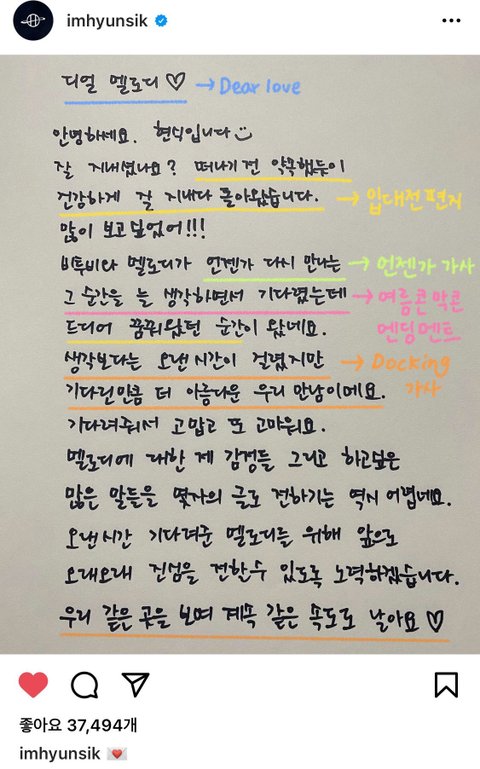 imhyunsik
디얼 멜로디♡ → Dear love
안녕하세요. 현식입니다
잘 지내셨나요? 떠나기 전 약속했듯이
건강하게 잘 지내다 돌아왔습니다. → 입대전 편지
많이 보고싶었어!!!
비투비와 멜로디가 언젠가 다시 만나는 → 언젠가 가사
그 순간을 늘 생각하면서 기다렸는데 → 여름콘 막콘
엔딩멘트
드디어 꿈꿔왔던 순간이 왔네요.
생각보다는 오랜 시간이 걸렸지만 → Docking
가사
기다린만큼 더 아름다운 우리 만남이에요.
기다려줘서 고맙고 또 고마워요.
멜로디에 대한 제 감정들 그리고 하고싶은
많은 말들을 몇자의 글로 전하기는 역시 어렵네요.
오랜시간 기다려준 멜로디를 위해 앞으로
오래오래 진심을 전할수 있도록 노력하겠습니다.
우리 같은 곳을 보며 계속 같은 속도로 날아요♡
좋아요 37,494개
imhyunsik 💌